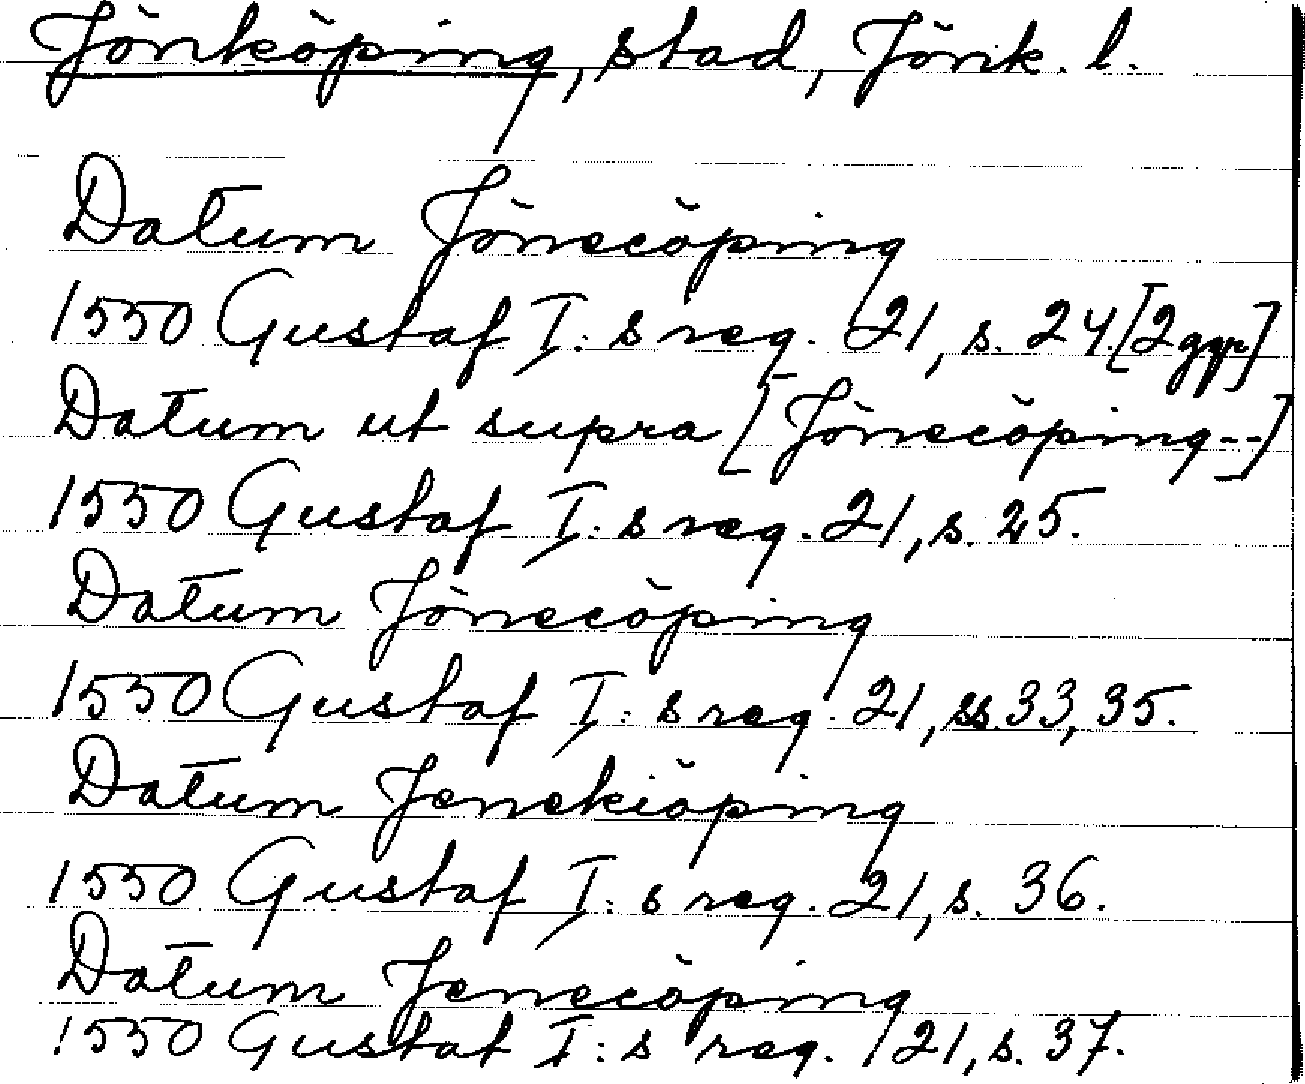 Jönköping, stad, Jönk. l.
Datum Jönecöping
1550 Gustaf I:s reg. 21, s. 24.[2 ggr]
Datum ut supra [Jönecöping--]
1550 Gustaf I:s reg. 21, s. 25.
Datum Jönecöping
1550 Gustaf I:s reg. 21, ss. 33, 35.
Datum Jenekiöping
1550 Gustaf I:s reg. 21, s. 36.
Datum Jenecöping
1550 Gustaf I:s reg. 21, s. 37.